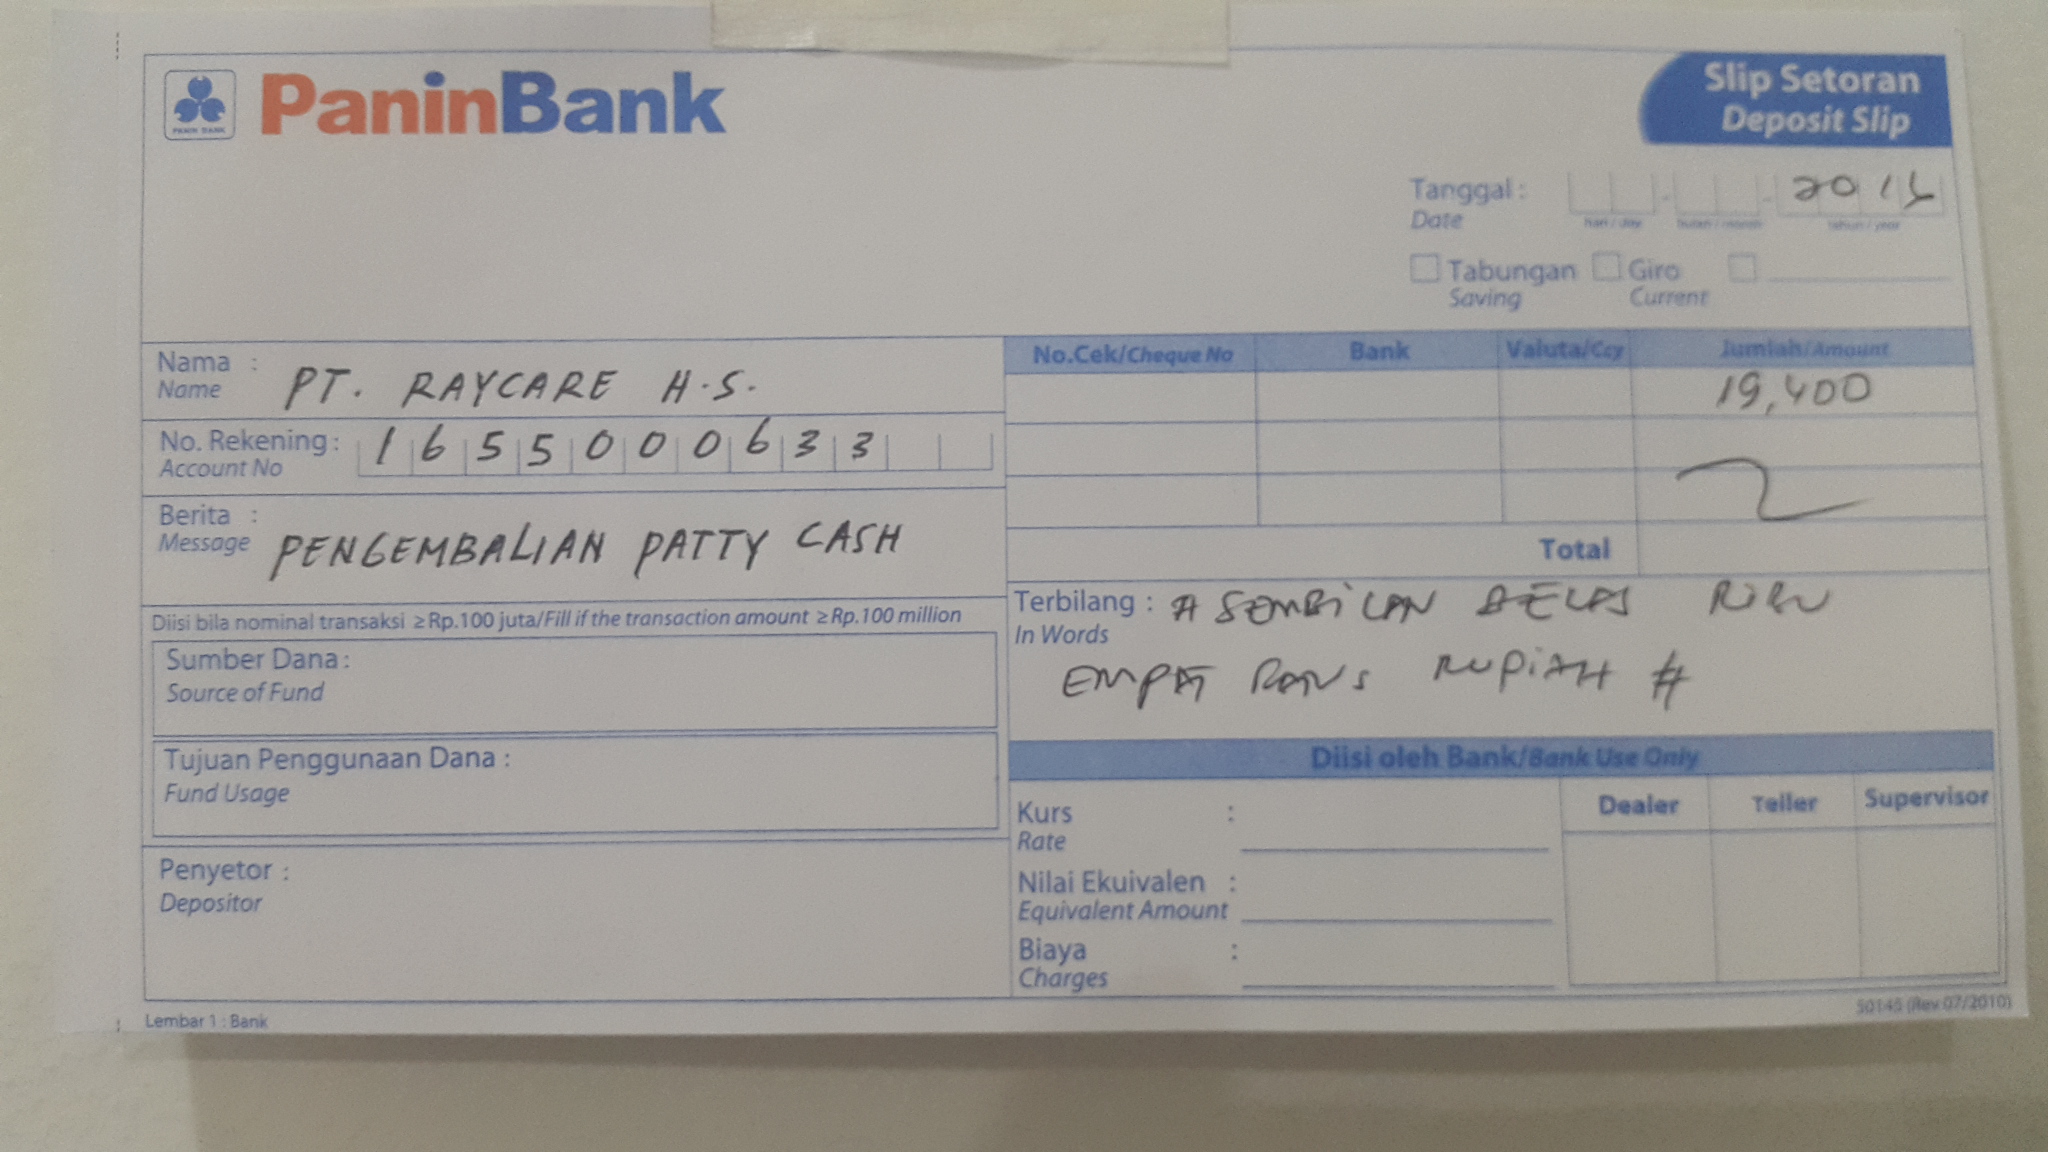 PANIN BANK
PaninBank
Slip Setoran
Deposit Slip
Tanggal :
Date
hari / day
bulan / month
tahun / year
Tabungan
Saving
Giro
Current
Nama :
Name
PT. RAYCARE H.S.
No. Rekening :
Account No
1655000633
Berita :
Message
PENGEMBALIAN PATTY CASH
Diisi bila nominal transaksi ≥Rp.100 juta/Fill if the transaction amount ≥Rp.100 million
Sumber Dana :
Source of Fund
Tujuan Penggunaan Dana :
Fund Usage
Penyetor :
Depositor
No.Cek/Cheque No Bank Valuta/Ccy Jumlah/Amount
19,400
Total
Terbilang : # SEMBILAN BELAS RIBU
In Words
EMPAT RATUS RUPIAH #
Diisi oleh Bank/Bank Use Only
Kurs :
Rate
Nilai Ekuivalen :
Equivalent Amount
Biaya :
Charges
Dealer Teller Supervisor
Lembar 1 : Bank
50145 (Rev 07/2010)